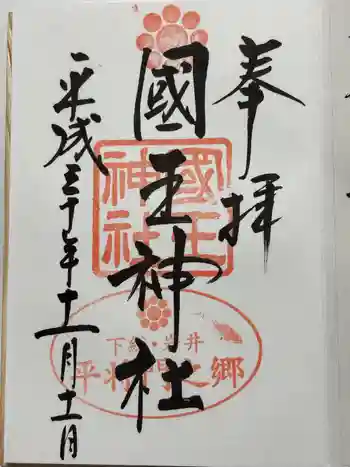 奉拝
國王神社
平成三十年十一月十一日
國王
神社
下総・岩井
平将門之郷